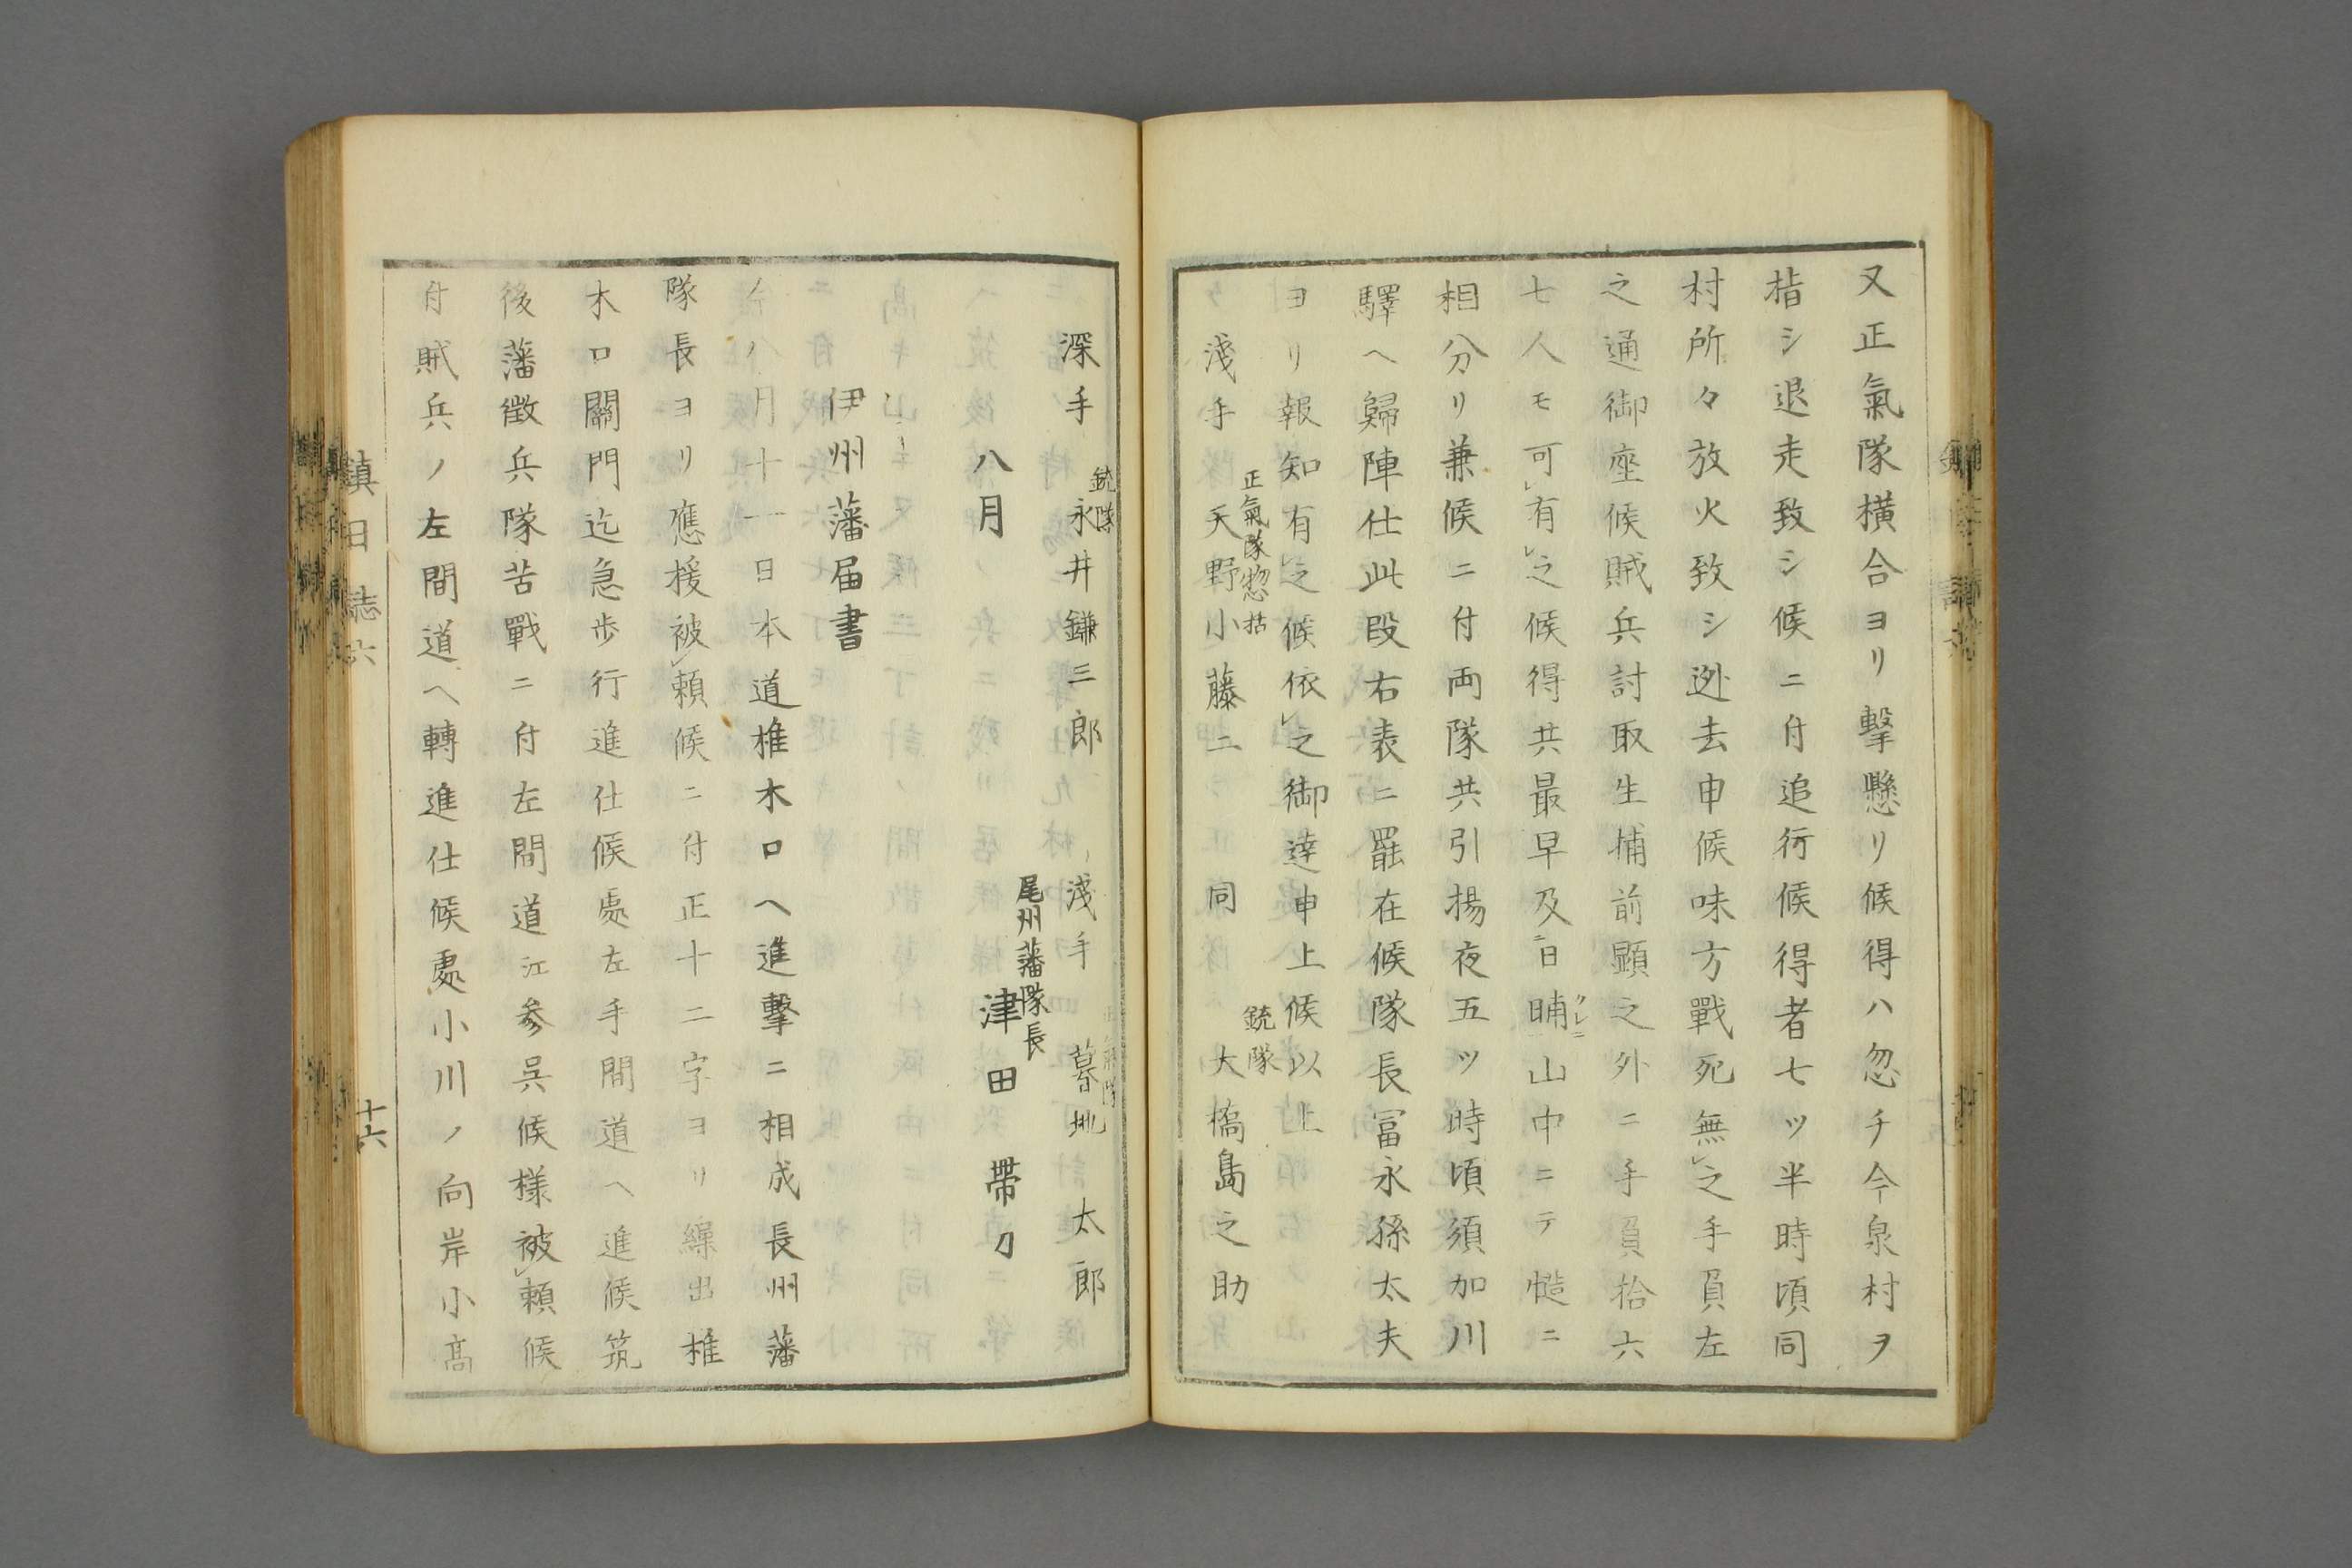 又正氣隊横合ヨリ擊懸リ候得ハ忽チ今泉村ヲ
指シ退走致シ候ニ付追行候得者七ツ半時頃同
村所々放火致シ迯去申候味方戰死無レ之手負左
之通御座候賊兵討取生捕前顕之外ニ手負拾六
七人モ可レ有レ之候得共最早及ニ日晡クレニ山中ニテ慥ニ
相分リ兼候ニ付両隊共引揚夜五ツ時頃須加川
驛ヘ歸陣仕此段右表ニ罷在候隊長冨永孫太夫
ヨリ報知有レ之候依レ之御達申上候以上
淺手 正氣隊惣括 天野小藤二 同 銃隊 大橋島之助
深手 銃隊 永井鎌三郎 淺手 墓地太郎
八月 尾州藩隊長 津田帶刀
伊州藩届書
今八月十一日本道椎木口ヘ進擊ニ相成長州藩
隊長ヨリ應援被レ頼候ニ付正十二字ヨリ繰出椎
木口關門迄急歩行進仕候處左手間道ヘ進候筑
後藩徴兵隊苦戰ニ付左間道江参呉候様被レ頼候
付賊兵ノ左間道ヘ轉進仕候處小川ノ向岸小髙
鎮日誌六
十六